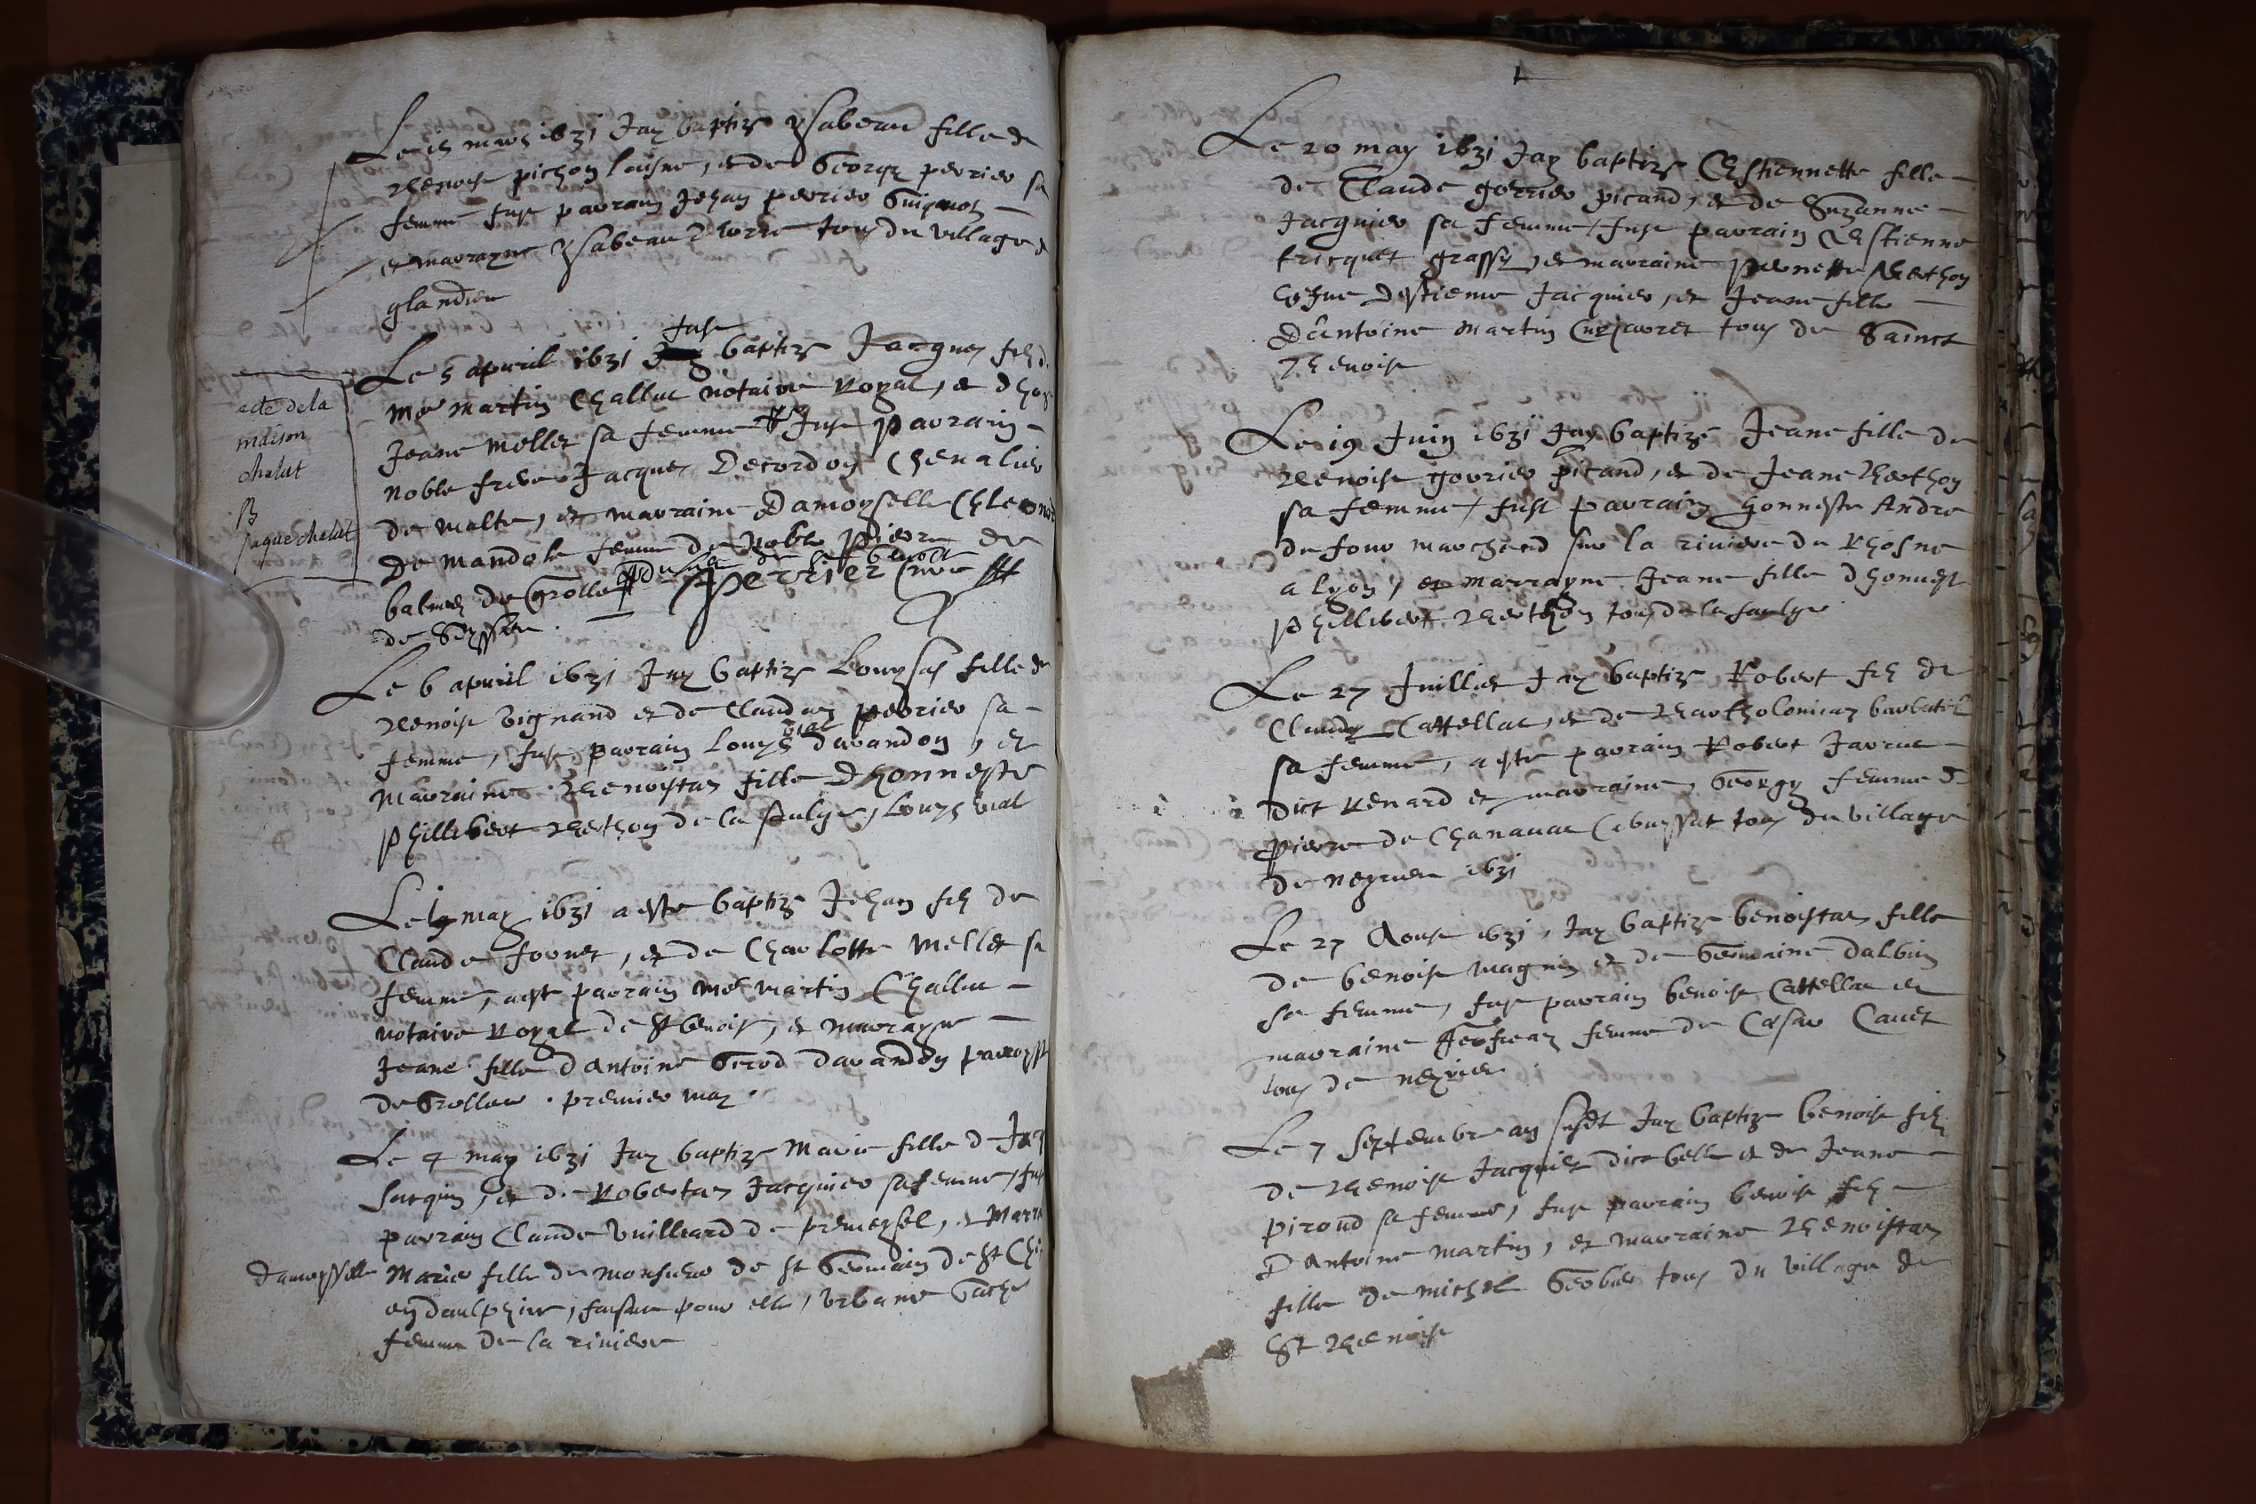 Le 15 mars 1631 Jay baptize ysabeau fille de
Benoist pichon loisne, et de George perrier sa
femme fust parrain Jehan perrier
et marrayne ysabeau tous du village de
glandieu
fust
Le 5 apuril 1631 baptize Jacques filz de
Me martin Challut notaire Royal, et dhon
Jeane mollet sa femme fust parrain
noble frere Jacques Decordon Chevalier
de malte, et marraine Damoyselle
De mandole femme de Noble pierre de
balmes de Grolle
Perrier Curé
de
acte de la
maison
chalut
B
jaque chalut
Le 6 apuril 1631 Jay baptize Louysaz fille de
Benoist vignand et de Claudaz perrier sa
vial
femme, fust parrain Louys davandon, et
Marraine Benoistaz fille dhonneste
phillibert Berthon de la saulge, Louys vial
Le may 1631 a este baptize Jehan filz de
Claude fornet, et de Charlotte mellet sa
femme, a este parrain me martin Challut
notaire Royal de St benoist, et marrayne
Jeane fille d Antoine Girod davandon parroysse
de Grollee . premier may
Le 4 may 1631 Jay baptize Marie fille de
, et de Robertaz Jacquier sa femme, fust
parrain Claude vuilliard de premeysel, et Marr
Damoyselle Marie fille de monsieur de St Germain de St
en daulphine, faisant pour elle, vrbane
femme de la riviere
Le 20 may 1631 Jay baptize Estiennette fille
de Claude gorrier picand, et de Suzanne
Jacquier sa femme, fust parrain Estienne
tricquet grassy, et marraine pernette Berthon
destienne Jacquier, et Jeane fille
dantoine martin tous de Sainct
Benoist
Le 19 Juin 1631 Jay baptize Jeane fille de
Benoist gorrier picand, et de Jeane Berthon
sa femme, fust parrain honneste Andre
du four marchand sur la riviere du Rhosne
a lyon, et marrayne Jeane fille dhonnest
phillibert Berthon tous de la saulge
Le 27 Juillet Jay baptize Robert filz de
Claude Cattellat, et de Bartholomiaz
sa femme, a este parrain Robert
dict Renard et marraine, George femme de
pierre de Chanavat tous du village
de neyrieu 1631
Le 27 Aoust 1631, Jay baptize benoistaz fille
de benoist magnin et de Germaine dalbin
sa femme, fust parrain benoist Cattellat et
marraine femme de Cesar Cavet
tous de neyrieu
Le 7 septembre an susdt Jay baptize benoist filz
de Benoist Jacquier dict belle et de Jeane
piroud sa femme, fust parrain benoist filz
D Antoine martin, et marraine Benoistaz
fille de michel tous du village de
St Benoist